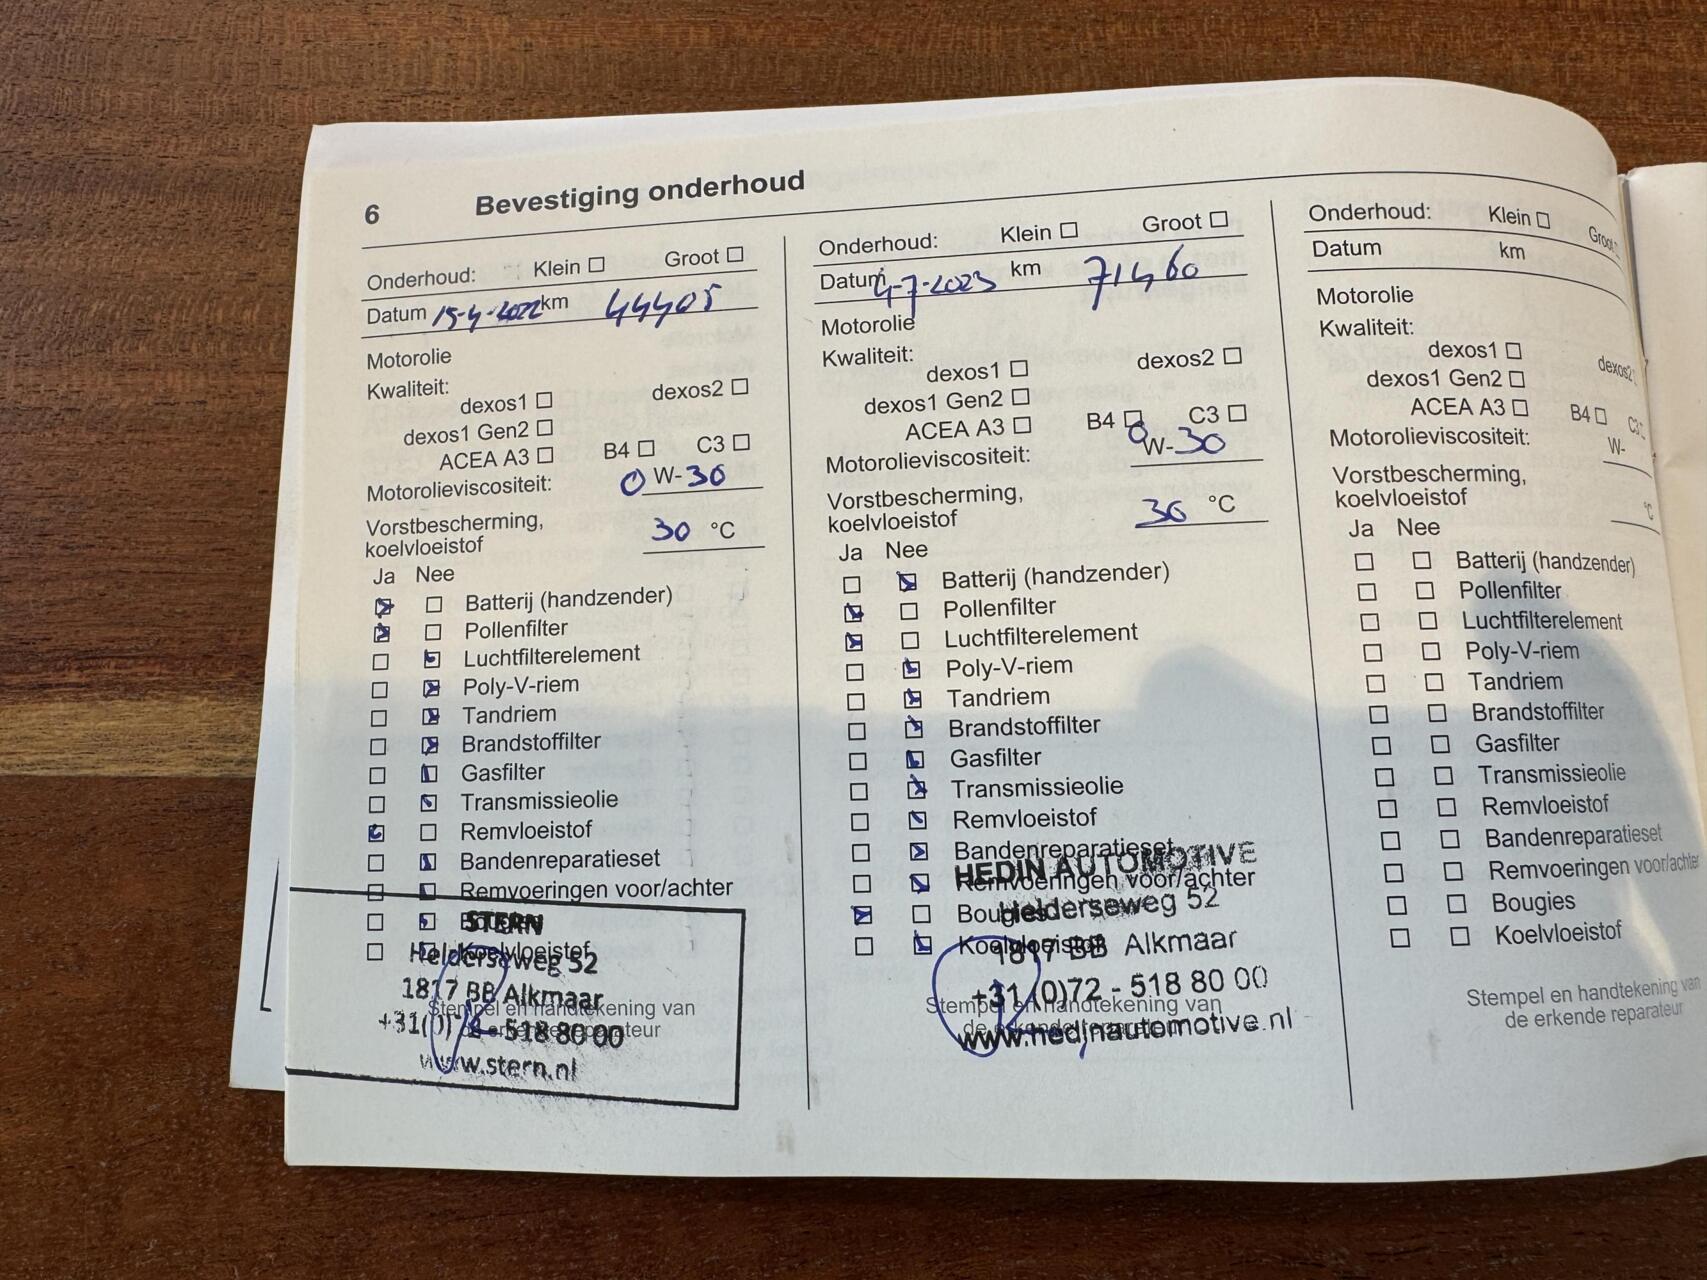 6 Bevestiging onderhoud
Onderhoud: Klein Groot
Datum 15-4-2022 km 44405
Motorolie
Kwaliteit:
dexos1 dexos2
dexos1 Gen2
ACEA A3 B4 C3
Motorolieviscositeit: 0 W-30
Vorstbescherming,
koelvloeistof 30 °C
Ja Nee
Batterij (handzender)
Pollenfilter
Luchtfilterelement
Poly-V-riem
Tandriem
Brandstoffilter
Gasfilter
Transmissieolie
Remvloeistof
Bandenreparatieset
Remvoeringen voor/achter
Bougies
Koelvloeistof
Stempel en handtekening van
de erkende reparateur
STERN
Helderseweg 52
1817 BB Alkmaar
+31(0)72 - 518 80 00
www.stern.nl
Onderhoud: Klein Groot
Datum 4-7-2023 km 71460
Motorolie
Kwaliteit:
dexos1 dexos2
dexos1 Gen2
ACEA A3 B4 C3
Motorolieviscositeit: 0 W-30
Vorstbescherming,
koelvloeistof 30 °C
Ja Nee
Batterij (handzender)
Pollenfilter
Luchtfilterelement
Poly-V-riem
Tandriem
Brandstoffilter
Gasfilter
Transmissieolie
Remvloeistof
Bandenreparatieset
Remvoeringen voor/achter
Bougies
Koelvloeistof
Stempel en handtekening van
de erkende reparateur
HEDIN AUTOMOTIVE
Helderseweg 52
1817 BB Alkmaar
+31 (0)72 - 518 80 00
www.hedinautomotive.nl
Onderhoud: Klein Groot
Datum km
Motorolie
Kwaliteit:
dexos1 dexos2
dexos1 Gen2
ACEA A3 B4 C3
Motorolieviscositeit: W-
Vorstbescherming,
koelvloeistof °C
Ja Nee
Batterij (handzender)
Pollenfilter
Luchtfilterelement
Poly-V-riem
Tandriem
Brandstoffilter
Gasfilter
Transmissieolie
Remvloeistof
Bandenreparatieset
Remvoeringen voor/achter
Bougies
Koelvloeistof
Stempel en handtekening van
de erkende reparateur